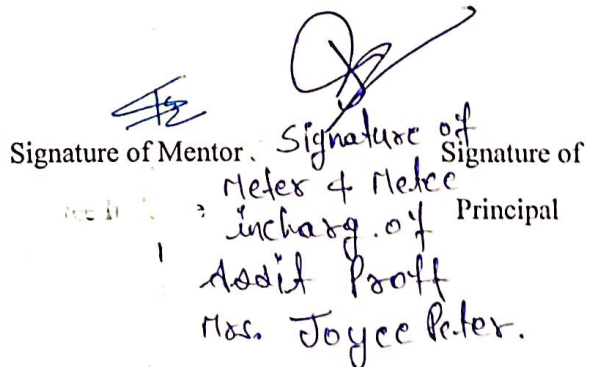 Signature of Mentor.
Signature of
Meter & Metee
incharg. of
Assit Proff
Mrs. Joyce Peter.
Signature of
Principal